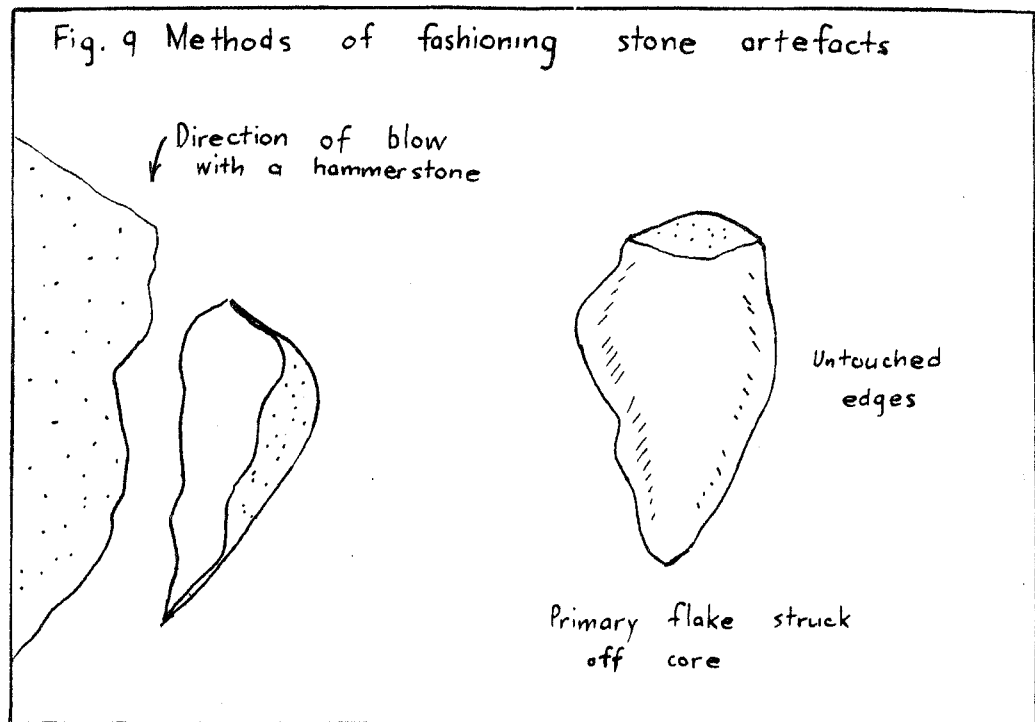 Fig. 9 Methods of fashioning stone artefacts
Direction of blow
with a hammerstone
Untouched
edges
Primary flake struck
off core